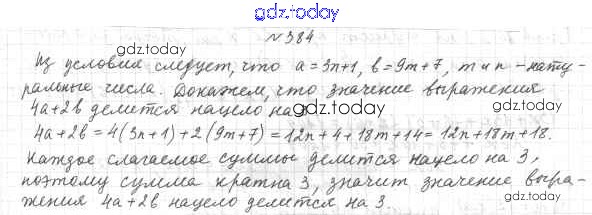 gdz.today
№384
gdz.today
Из условия следует, что a=3n+1, b=9m+7, m и n - нату-
ральные числа. Докажем, что значение выражения
4a+2b делится нацело на 3.
gdz.today
gdz.today
4a+2b=4(3n+1)+2(9m+7)=12n+4+18m+14=12n+18m+18.
Каждое слагаемое суммы делится нацело на 3,
поэтому сумма кратна 3, значит значение выра-
жения 4a+2b нацело делится на 3.
gdz.today
gdz.today